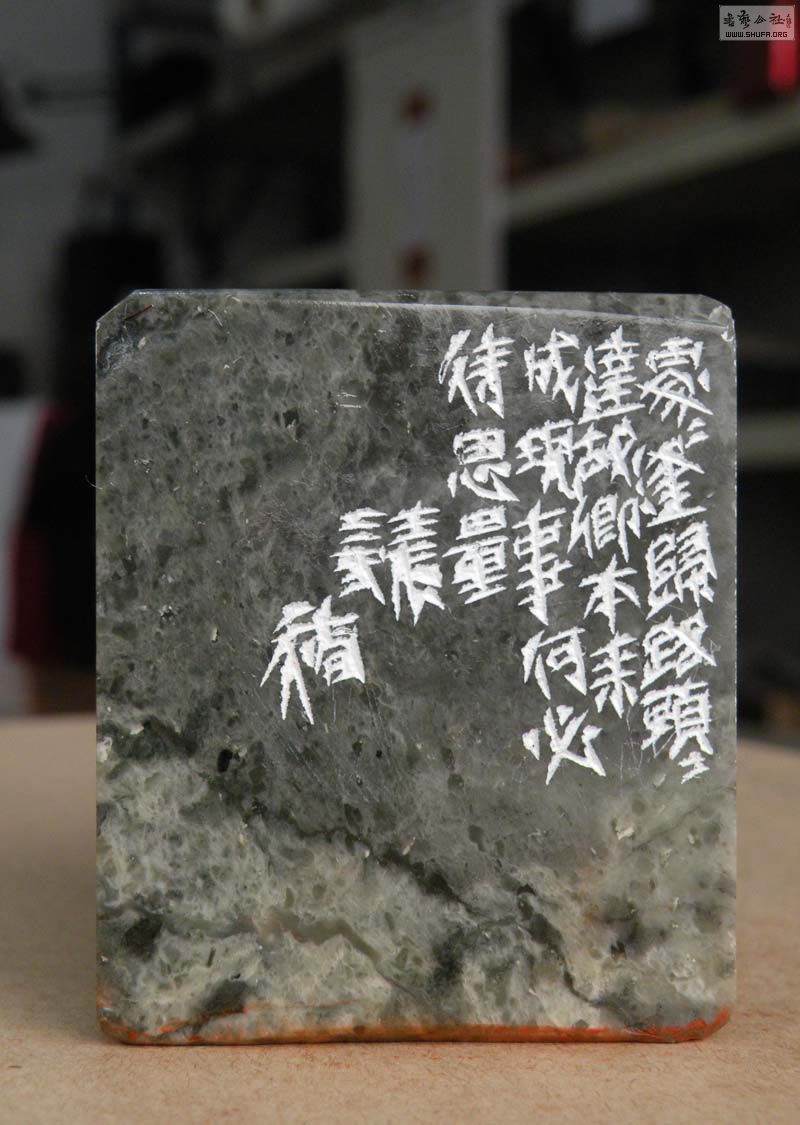 處〻逢歸路頭〻
達故鄉本来
成現事何必
待思量
書藝公社
WWW.SHUFA.ORG